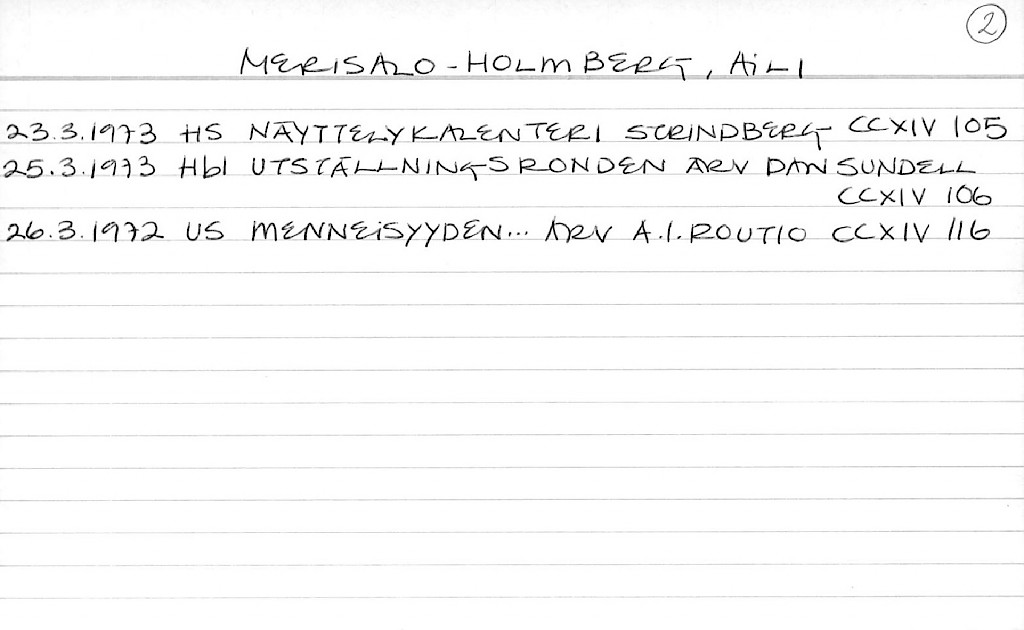 2
MERISALO-HOLMBERG, AILI
23.3.1973 HS NÄYTTELYKALENTERI STRINDBERG CCXIV 105
25.3.1973 Hbl UTSTÄLLNINGSRONDEN ARV DAN SUNDELL
CCXIV 106
26.3.1972 US MENNEISYYDEN... ARV A.I. ROUTIO CCXIV 116